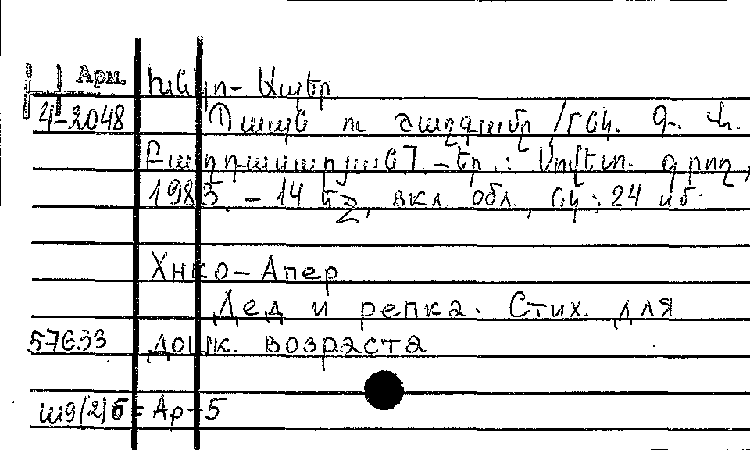 Арм. Խնկո-Ապեր
4-2048 Պապն ու շաղգամը /Նկ. Գ.
Եր.: Սովետ. գրող,
1985. - 14 էջ, вкл. обл., նկ.; 24 սմ.
Хнко-Апер
Дед и репка. Стих. для
57633 дошк. возраста
ш9(2)б = Ар-5